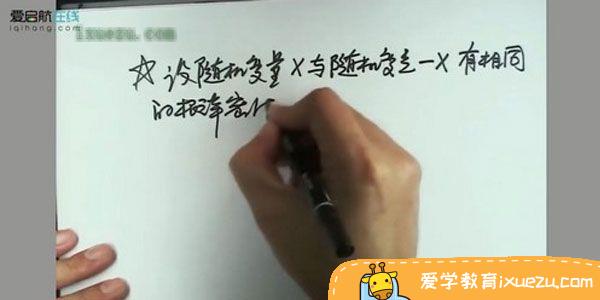 爱启航在线
iqihang.com
ixuezu.com
☆ 设随机变量 X 与随机变量 -X 有相同
的概率密
爱学教育ixuezu.com